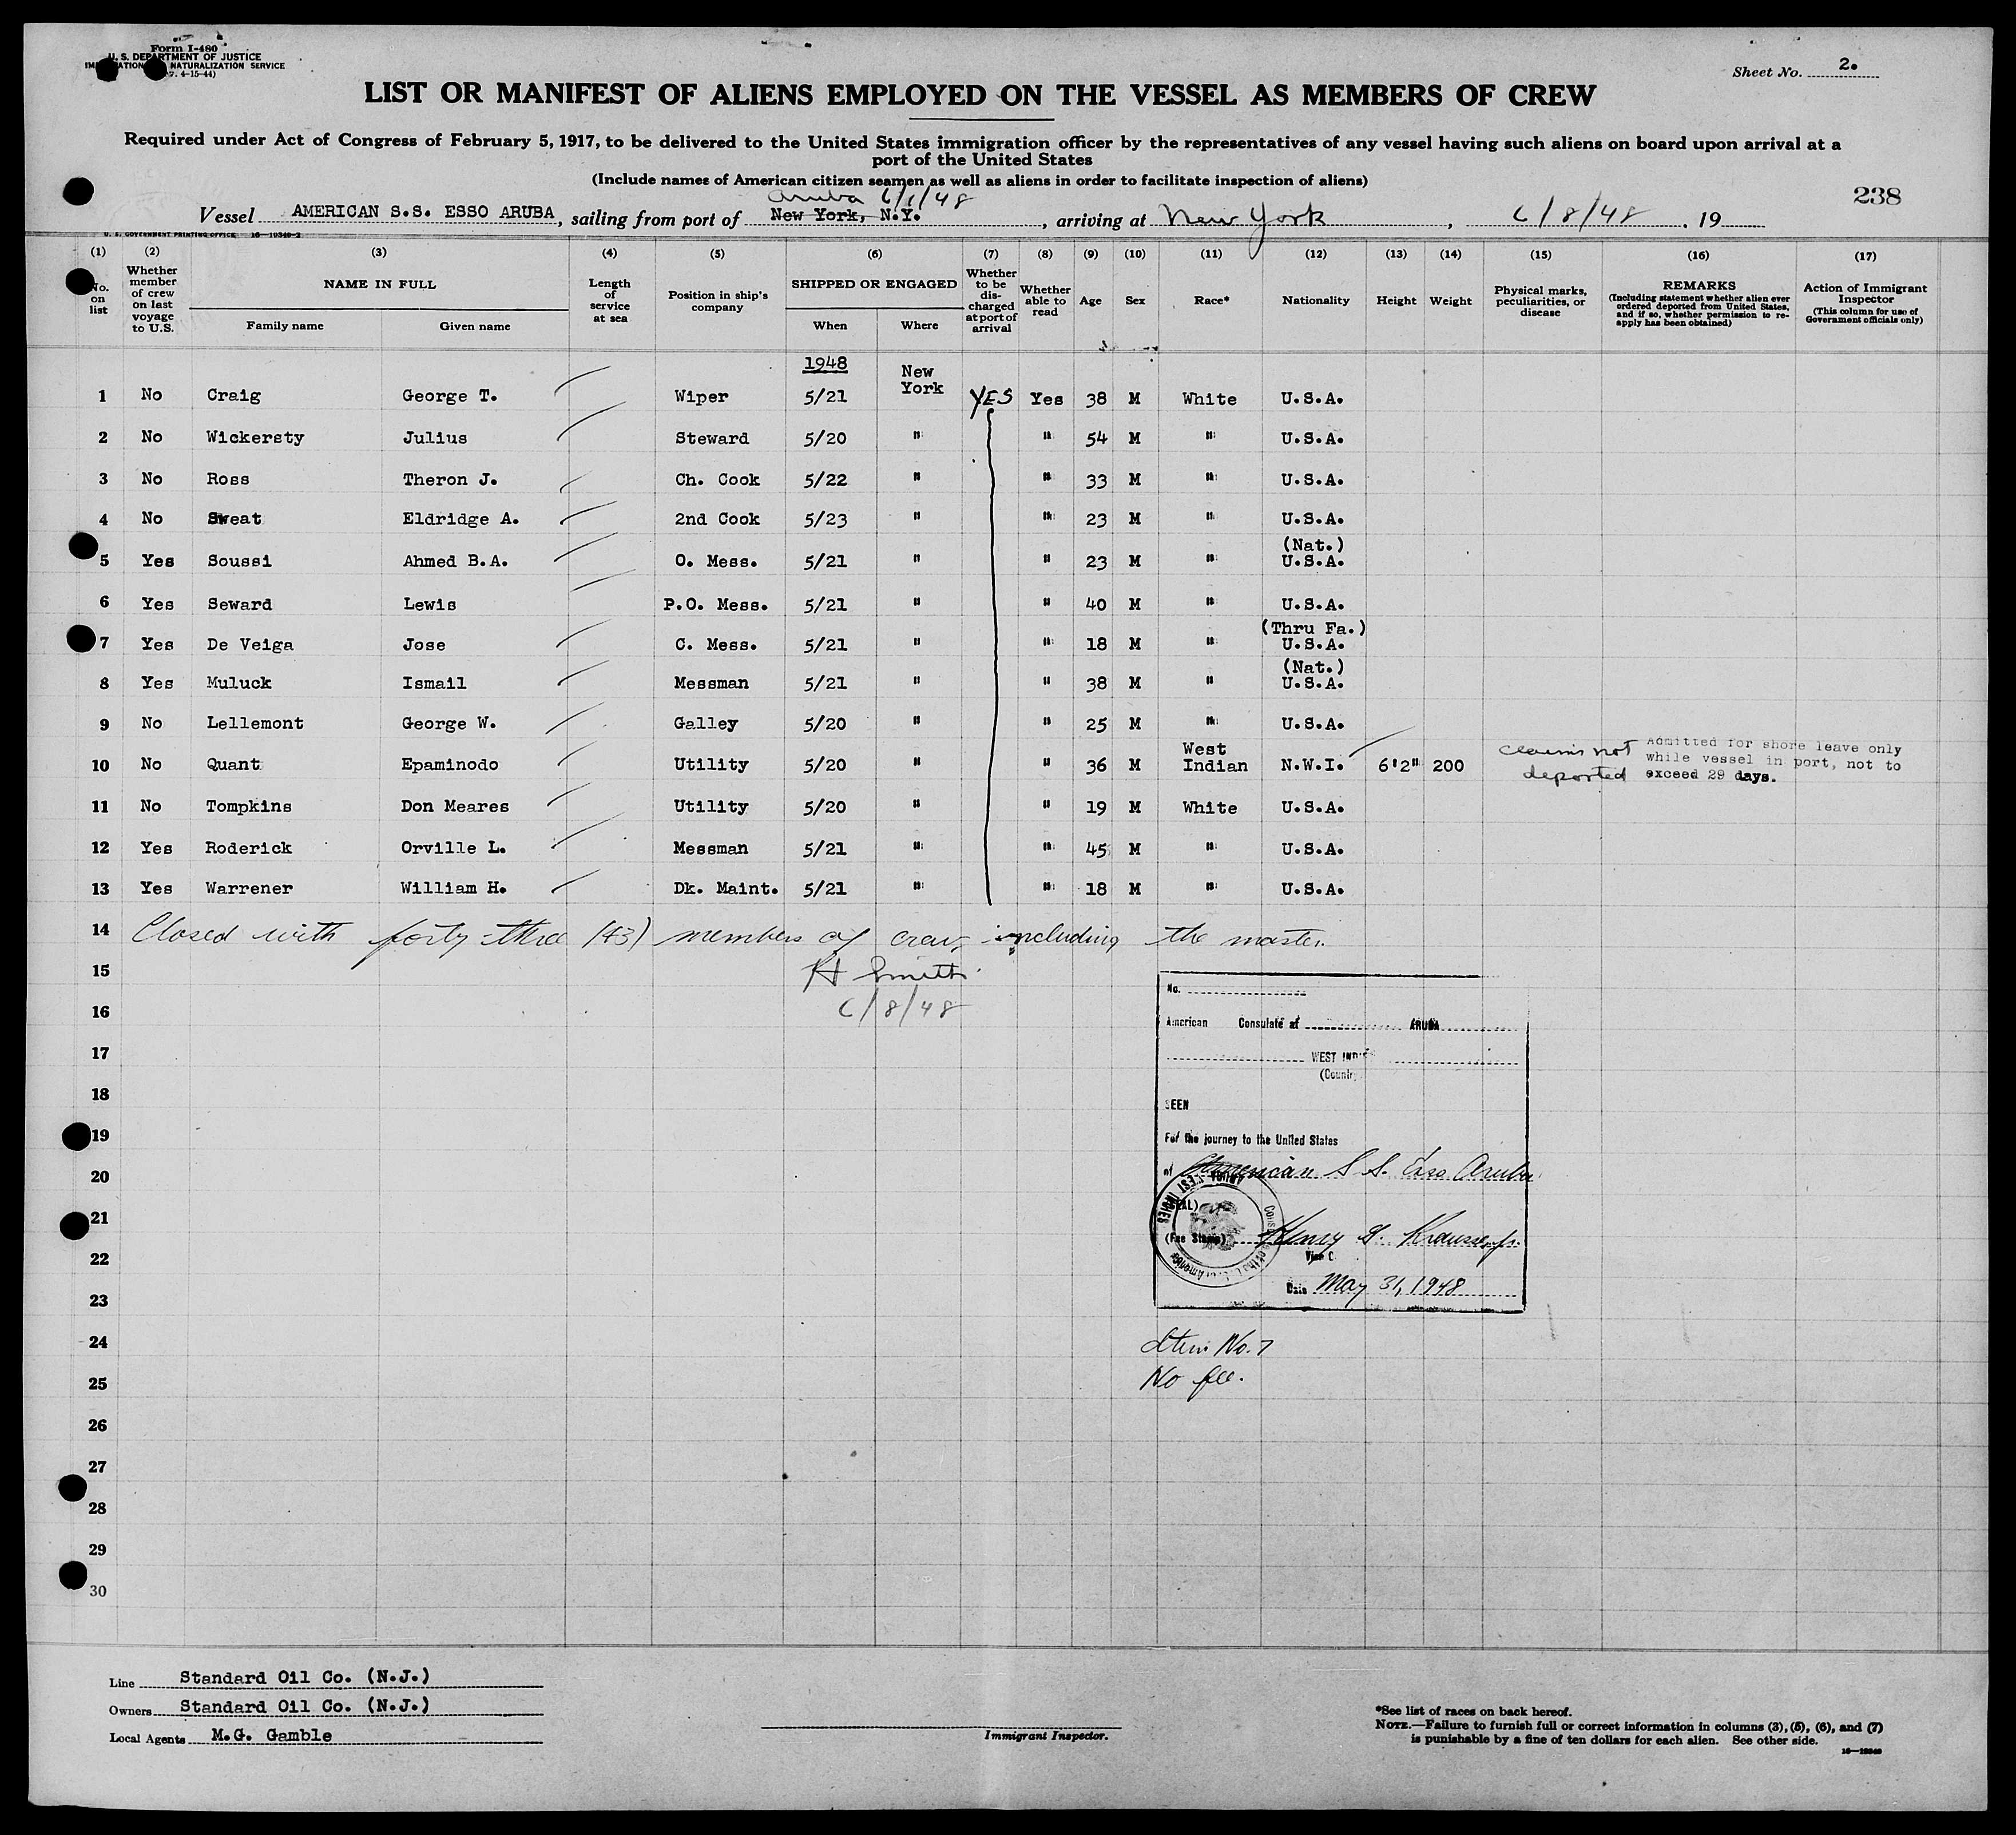 Form I-480
U. S. DEPARTMENT OF JUSTICE
NATURALIZATION SERVICE
4-15-44)
Sheet No. 2.
LIST OR MANIFEST OF ALIENS EMPLOYED ON THE VESSEL AS MEMBERS OF CREW
Required under Act of Congress of February 5, 1917, to be delivered to the United States immigration officer by the representatives of any vessel having such aliens on board upon arrival at a
port of the United States
(Include names of American citizen seamen as well as aliens in order to facilitate inspection of aliens)
238
Aruba 6/1/48
Vessel AMERICAN S.S. ESSO ARUBA, sailing from port of New York, N.Y., arriving at New York, 6/8/48, 19
U. S. GOVERNMENT PRINTING OFFICE 16-19349-2
(1) (2) (3) (4) (5) (6) (7) (8) (9) (10) (11) (12) (13) (14) (15) (16) (17)
No. on list
Whether member of crew on last voyage to U.S.
NAME IN FULL
Family name Given name
Length of service at sea
Position in ship's company
SHIPPED OR ENGAGED
When Where
Whether to be discharged at port of arrival
Whether able to read
Age Sex Race* Nationality Height Weight
Physical marks, peculiarities, or disease
REMARKS
(Including statement whether alien ever ordered deported from United States, and if so, whether permission to reapply has been obtained)
Action of Immigrant Inspector
(This column for use of Government officials only)
1948
1 No Craig George T. Wiper 5/21 New York YES Yes 38 M White U.S.A.
2 No Wickersty Julius Steward 5/20 " " 54 M " U.S.A.
3 No Ross Theron J. Ch. Cook 5/22 " " 33 M " U.S.A.
4 No Sweat Eldridge A. 2nd Cook 5/23 " " 23 M " U.S.A.
5 Yes Soussi Ahmed B.A. O. Mess. 5/21 " " 23 M " (Nat.) U.S.A.
6 Yes Seward Lewis P.O. Mess. 5/21 " " 40 M " U.S.A.
7 Yes De Veiga Jose C. Mess. 5/21 " " 18 M " (Thru Fa.) U.S.A.
8 Yes Muluck Ismail Messman 5/21 " " 38 M " (Nat.) U.S.A.
9 No Lellemont George W. Galley 5/20 " " 25 M " U.S.A.
10 No Quant Epaminodo Utility 5/20 " " 36 M West Indian N.W.I. 6'2" 200 claims not deported Admitted for shore leave only while vessel in port, not to exceed 29 days.
11 No Tompkins Don Meares Utility 5/20 " " 19 M White U.S.A.
12 Yes Roderick Orville L. Messman 5/21 " " 45 M " U.S.A.
13 Yes Warrener William H. Dk. Maint. 5/21 " " 18 M " U.S.A.
14 Closed with forty-three (43) members of crew including the master.
15 H Smith
16 6/8/48
17
18
19
20
21
22
23
24
25
26
27
28
29
30
No.
American Consulate at ARUBA
WEST INDIES
(Country)
SEEN
For the journey to the United States
of American S.S. Esso Aruba
(SEAL)
(Fee Stamp) Henry G. Krausse, Jr.
Vice C
Date May 31, 1948
Item No. 7
No fee.
Line Standard Oil Co. (N.J.)
Owners Standard Oil Co. (N.J.)
Local Agents M.G. Gamble
Immigrant Inspector.
*See list of races on back hereof.
NOTE.—Failure to furnish full or correct information in columns (3), (5), (6), and (7)
is punishable by a fine of ten dollars for each alien. See other side.